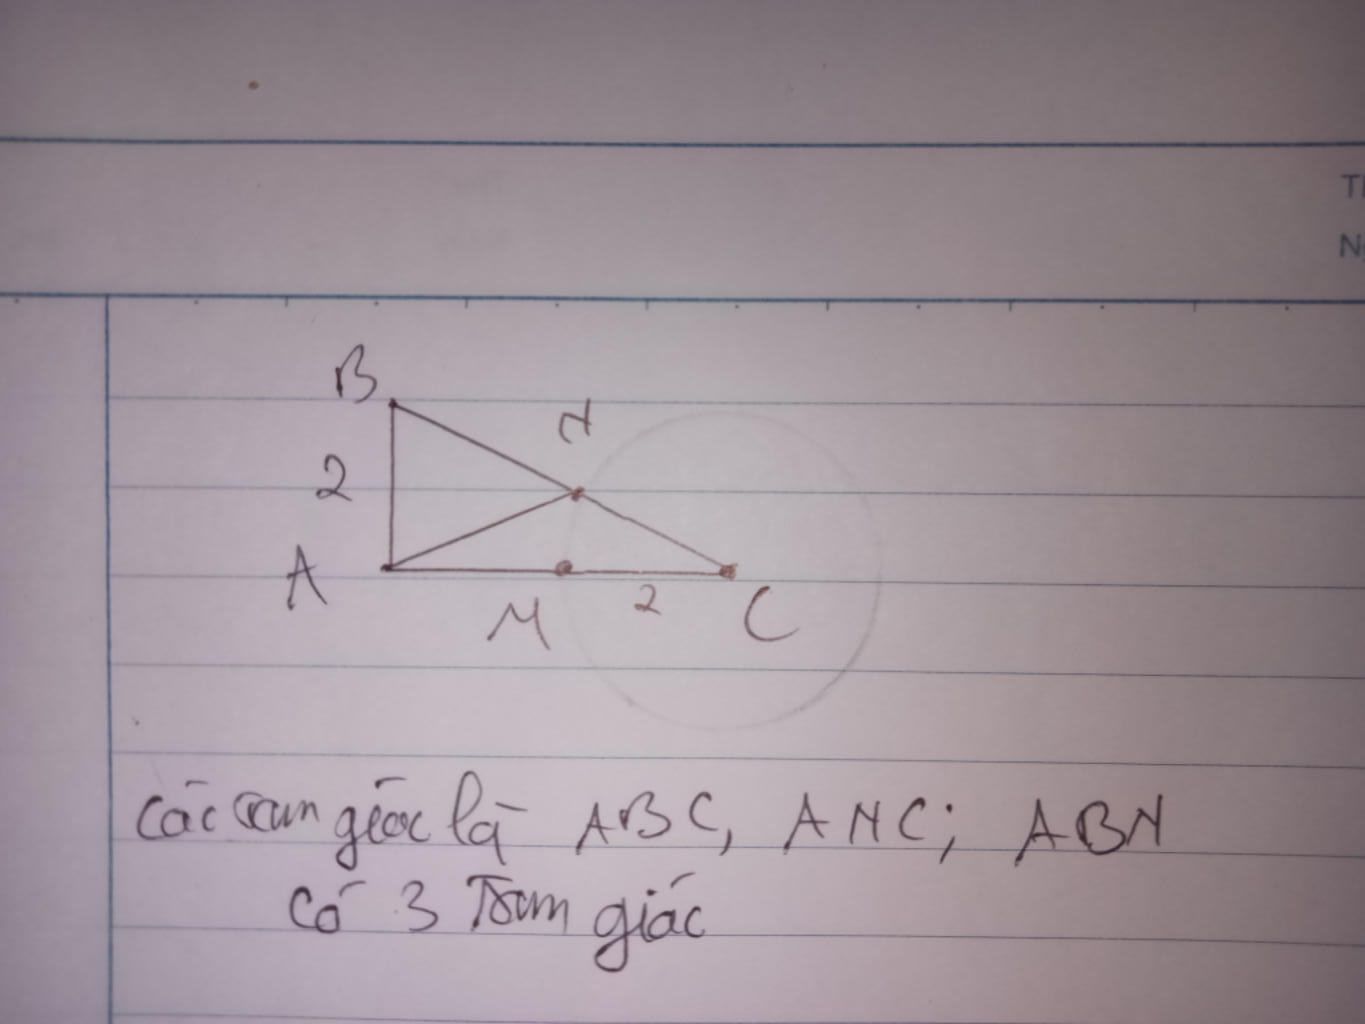 B
N
2
A
M
2
C
các tam giác là ABC, ANC; ABN
có 3 Tam giác